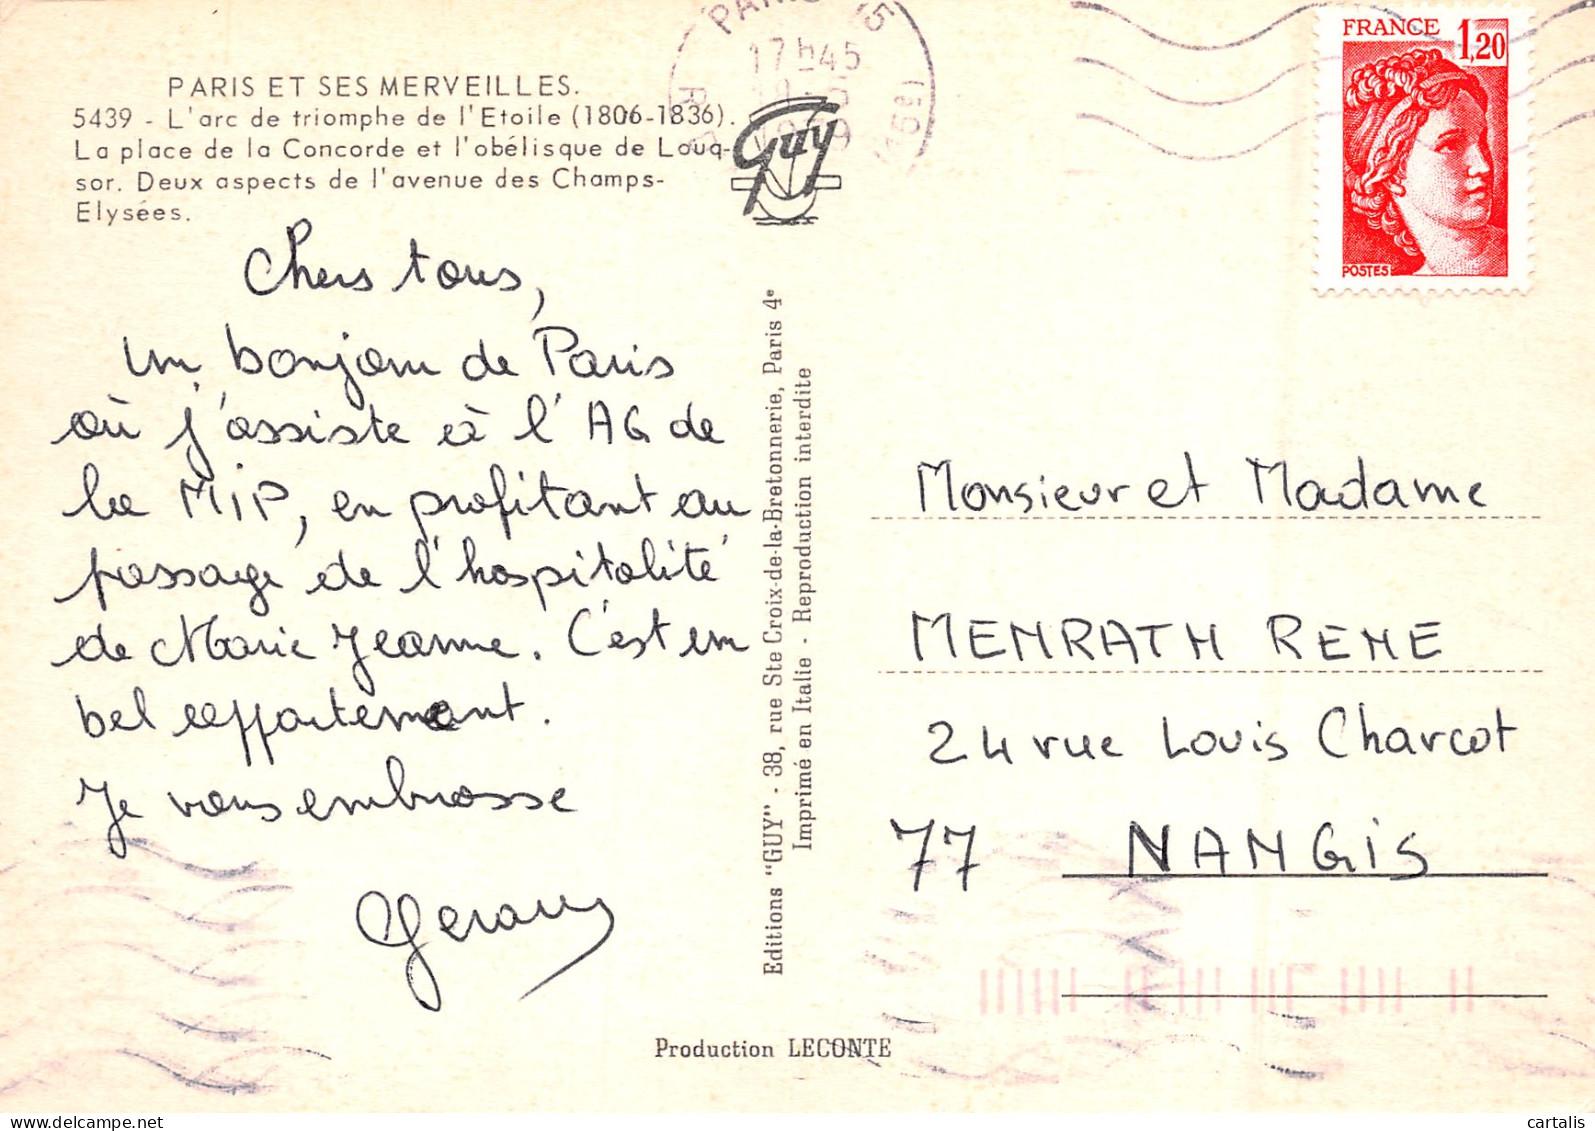 PARIS ET SES MERVEILLES.
5439 - L'arc de triomphe de l'Etoile (1806-1836).
La place de la Concorde et l'obélisque de Louq-
sor. Deux aspects de l'avenue des Champs-
Elysées.
Guy
PARIS 15
17H45
FRANCE 1,20
POSTES
Chers tous,
un bonjour de Paris
où j'assiste à l'AG de
la MIP, en profitant au
passage de l'hospitalité
de Marie Jeanne. C'est un
bel appartement.
Je vous embrasse
Editions "GUY" - 38, rue Ste Croix-de-la-Bretonnerie, Paris 4e
Imprimé en Italie - Reproduction interdite
Monsieur et Madame
MEMRATH RENE
24 rue Louis Charcot
77 NANGIS
Production LECONTE
www.cartalis.com
cartalis